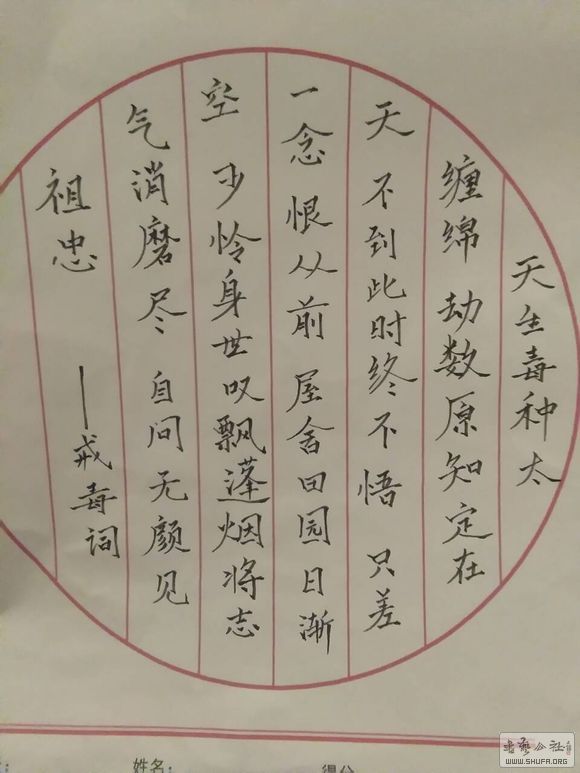 天生毒种太
缠绵 劫数原知定在
天 不到此时终不悟 只差
一念恨从前 屋舍田园日渐
空 少怜身世叹飘蓬烟将志
气消磨尽 自问无颜见
祖忠
——戒毒词
姓名:
得分
书艺公社
WWW.SHUFA.ORG